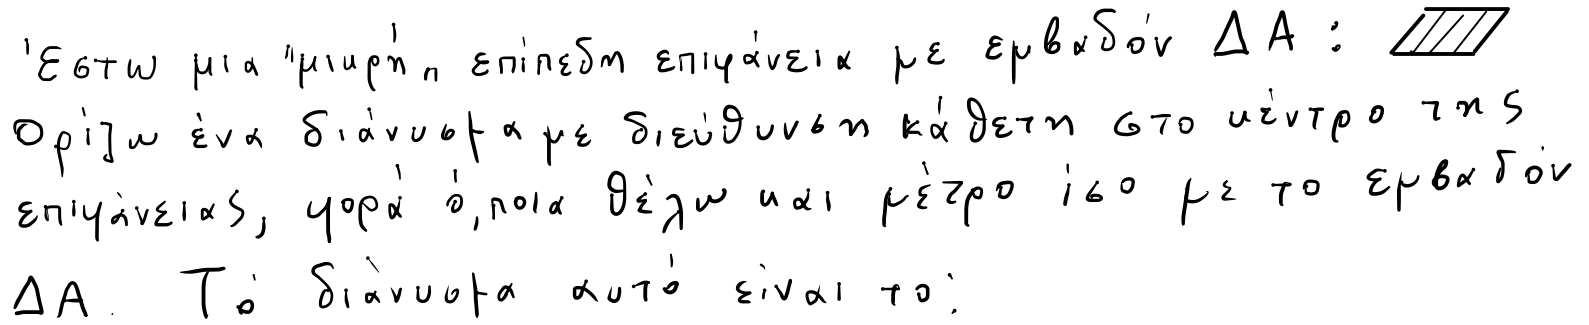 Έστω μια "μικρή" επίπεδη επιφάνεια με εμβαδόν ΔΑ:
Ορίζω ένα διάνυσμα με διεύθυνση κάθετη στο κέντρο της
επιφάνειας, φορά ό,ποια θέλω και μέτρο ίσο με το εμβαδόν
ΔΑ. Τό διάνυσμα αυτό είναι το: